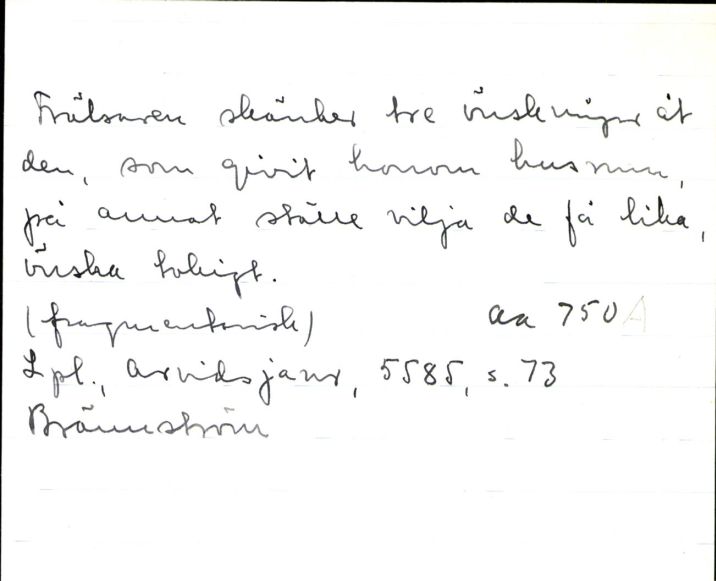 Frälsaren skänker tre önskningar åt
den, som givit honom husrum,
på annat ställe vilja de få lika,
önska tokigt.
(fragmentarisk) aa 750 A
Lpl., Arvidsjaur, 5585, s. 73
Brännström